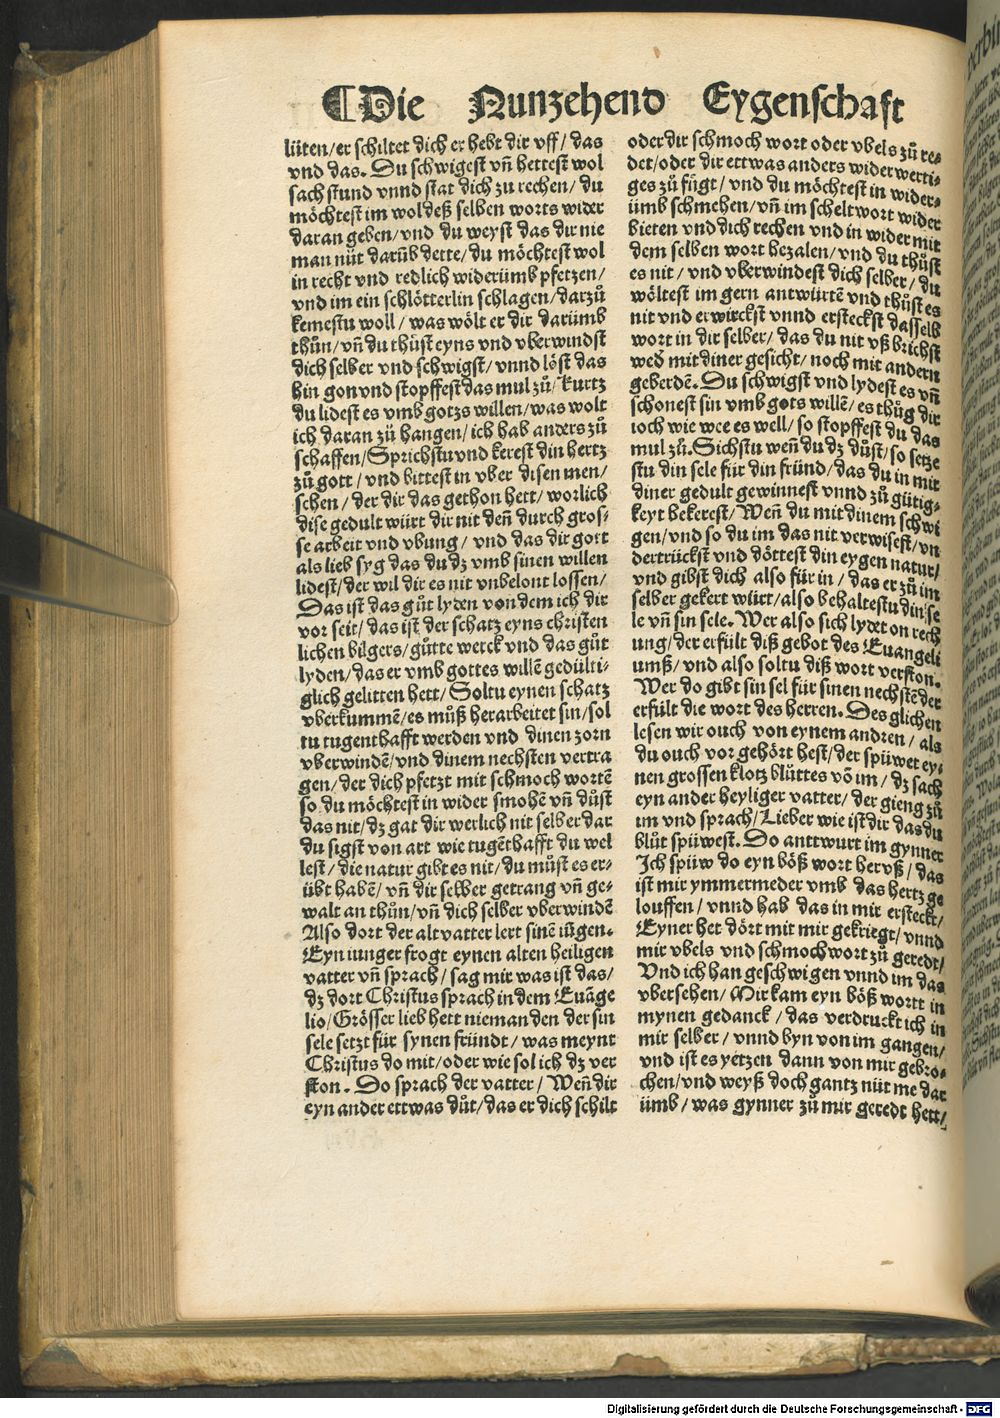 ¶Die Nunzehend Eygenschaft
lüten/er schiltet dich er hebt dir vff/ das
vnd das. Du schwigest vñ hettest wol
sach stund vnnd stat dich zu rechen/ du
möchtest im wol deß selben worts wider
daran geben/ vnd du weyst das dir nie
man nüt darũb dette/ du möchtest wol
in recht vnd redlich widerümb pfetzen/
vnd im ein schlötterlin schlagen/ darzů
kemestu woll/ was wölt er dir darümb
thůn/ vñ du thůst eyns vnd vberwindst
dich selber vnd schwigst/ vnnd löst das
hin gon vnd stopffest das mul zů/ kurtz
du lidest es vmb gotzs willen/ was wolt
ich daran zů hangen/ ich hab anders zů
schaffen/ Sprichstu vnd kerest din hertz
zů gott/ vnd bittest in vber disen men/
schen/ der dir das gethon hett/ worlich
dise gedult würt dir nit deñ durch gros-
se arbeit vnd vbung/ vnd das dir gott
als lieb syg das du dz vmb sinen willen
lidest/ der wil dir es nit vnbelont lossen/
Das ist das gůt lyden von dem ich dir
vor seit/ das ist der schatz eyns christen
lichen bilgers/ gůtte werck vnd das gůt
lyden/ das er vmb gottes willẽ gedülti-
glich gelitten hett/ Soltu eynen schatz
vberkummẽ/ es můß herarbeitet sin/ sol
tu tugenthafft werden vnd dinen zorn
vberwindẽ/ vnd dinem nechsten vertra
gen/ der dich pfetzt mit schmoch wortẽ
so du möchtest in wider smohẽ vñ důst
das nit/ dz gat dir werlich nit selber dar
du sigst von art wie tugẽthafft du wel
lest/ die natur gibt es nit/ du můst es er-
übt habẽ/ vñ dir selber getrang vñ ge-
walt an thůn/ vñ dich selber vberwindẽ
Also dort der alt vatter lert sinẽ iũgen.
Eyn iunger frogt eynen alten heiligen
vatter vñ sprach/ sag mir was ist das/
dz dort Christus sprach in dem Euãge
lio/ Grösser lieb hett nieman den der sin
sele setzt für synen fründt/ was meynt
Christus do mit/ oder wie sol ich dz ver
ston. Do sprach der vatter/ Weñ dir
eyn ander ettwas důt/ das er dich schilt
oder dir schmoch wort oder vbels zů re-
det/ oder dir ettwas anders widerwerti-
ges zů fügt/ vnd du möchtest in wider-
ümb schmehen/ vñ im scheltwort wider
bieten vnd dich rechen vnd in wider mit
dem selben wort bezalen/ vnd du thůst
es nit/ vnd vberwindest dich selber/ du
wöltest im gern antwürtẽ vnd thůst es
nit vnd erwirckst vnnd ersteckst dasselb
wort in dir selber/ das du nit vß brichst
wed mit diner gesicht/ noch mit andern
geberdẽ. Du schwigst vnd lydest es vñ
schonest sin vmb gots willẽ/ es thůg dir
ioch wie wee es well/ so stopffest du das
mul zů. Sichstu weñ du dz důst/ so setze
stu din sele für din fründ/ das du in mit
diner gedult gewinnest vnnd zů gütig-
keyt bekerest/ Weñ du mit dinem schwi
gen/ vnd so du im das nit verwisest/ vn
dertrückst vnd döttest din eygen natur/
vnd gibst dich also für in/ das er zů im
selber gekert würt/ also behaltestu din se
le vñ sin sele. Wer also sich lydet on rech
ung/ der erfült diß gebot des Euangeli
umß/ vnd also soltu diß wort verston.
Wer do gibt sin sel für sinen nechstẽ der
erfült die wort des herren. Des glichen
lesen wir ouch von eynem andren/ als
du ouch vor gehört hest/ der spüwet ey-
nen grossen klotz blůttes võ im/ dz sach
eyn ander heyliger vatter/ der gieng zů
im vnd sprach/ Lieber wie ist dir das du
blůt spüwest. Do anttwurt im gynner
Ich spüw do eyn böß wort hervß/ das
ist mir ymmermeder vmb das hertz ge
louffen/ vnnd hab das in mir ersteckt/
Eyner het dört mit mir gekriegt/ vnnd
mir vbels vnd schmochwort zů geredt/
Vnd ich han geschwigen vnnd im das
vbersehen/ Mir kam eyn böß wortt in
mynen gedanck/ das verdruckt ich in
mir selber/ vnnd byn von im gangen/
vnd ist es yetzen dann von mir gebro-
chen/ vnd weyß doch gantz nüt me dar
ümb/ was gynner zů mir geredt hett/
Digitalisierung gefördert durch die Deutsche Forschungsgemeinschaft - DFG